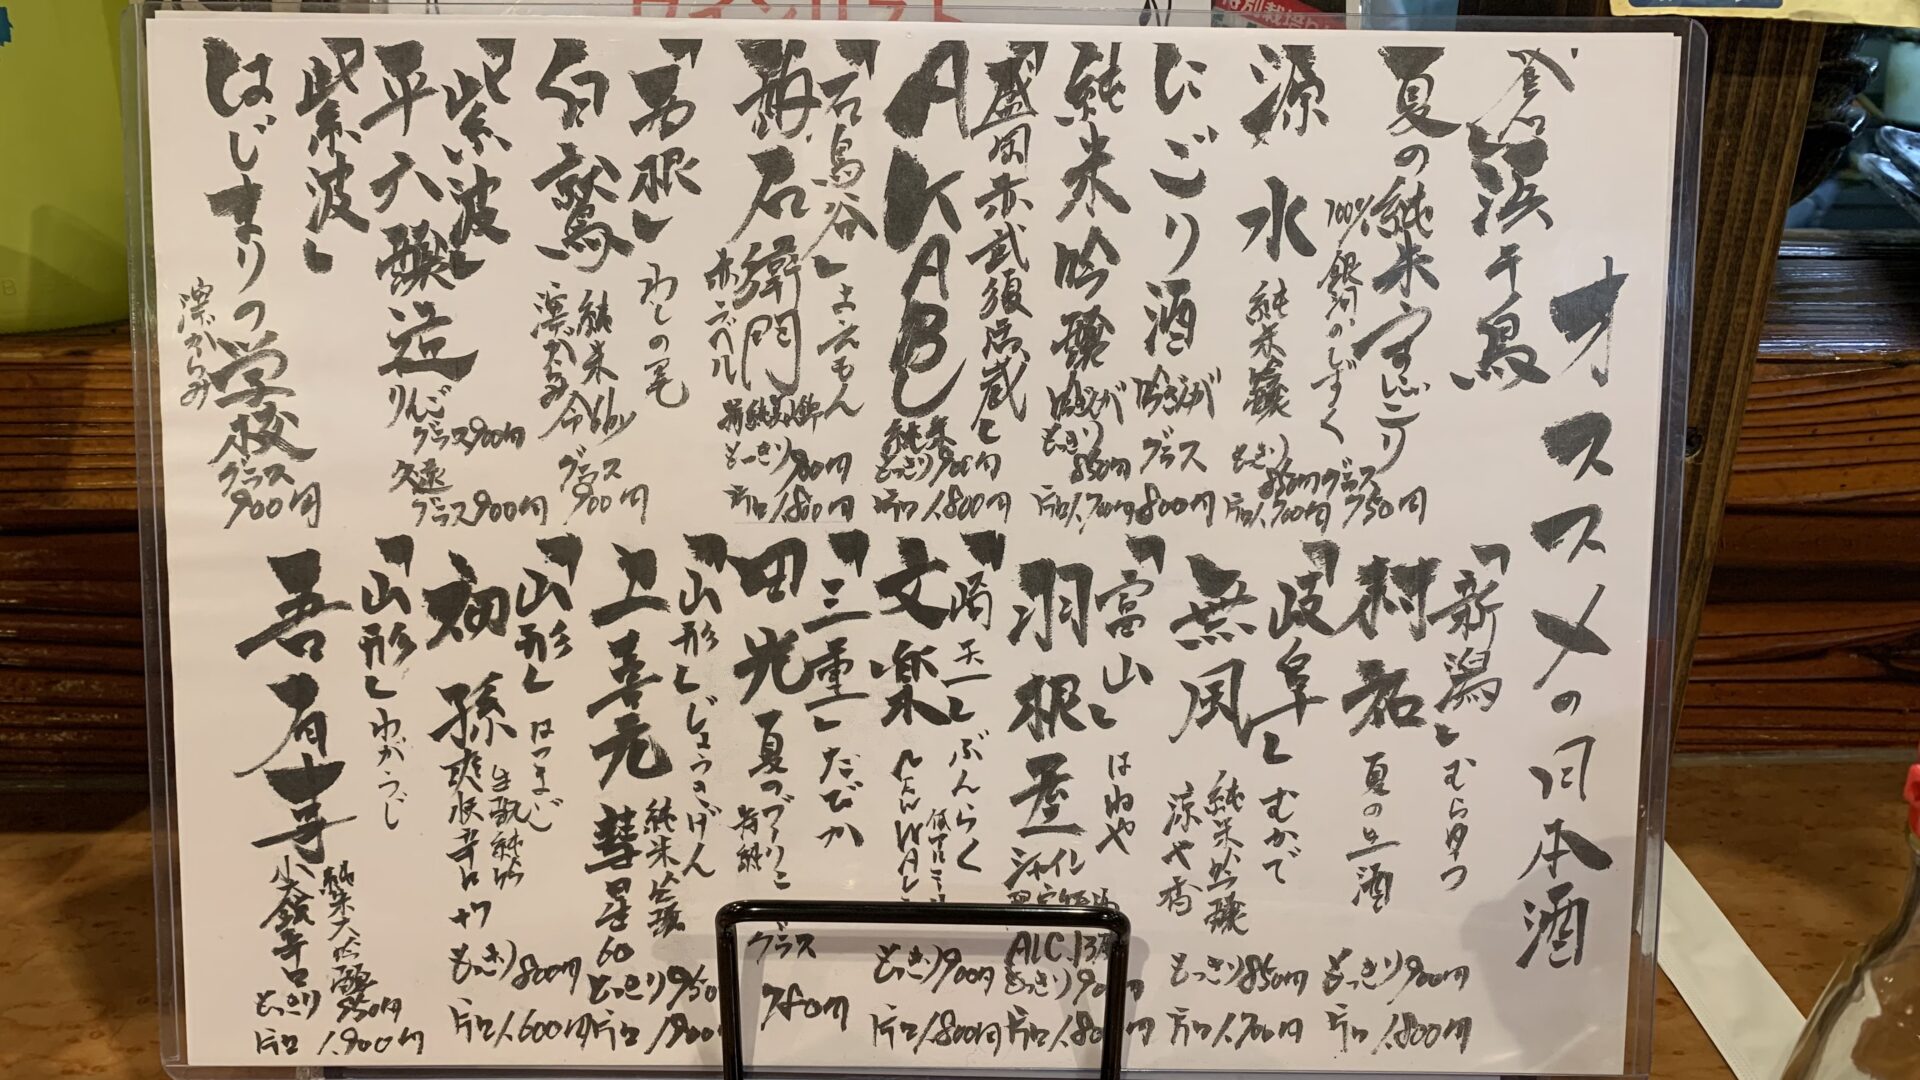 オススメの日本酒
浜千鳥
夏の純米うすにごり
100% 銀河のしずく
グラス
750円
源水
純米吟醸
もっきり
850円
片口1,700円
にごり酒
吟ぎんが
グラス
800円
純米吟醸
吟ぎんが
もっきり
850円
片口1,700円
「盛岡赤武酒造店蔵」
AKABU
純米
もっきり900円
片口1,800円
「石鳥谷」よえもん
酉与右衛門
赤ラベル
もっきり900円
片口1,800円
わしの尾
白鷲
純米
濃がらみ
グラス
900円
「紫波」
平六醸造
りんご
グラス900円
久遠
グラス900円
「紫波」
はじまりの学校
濃がらみ
グラス
900円
「新潟」むらゆう
村祐
夏の生酒
もっきり900円
片口1,800円
「岐阜」むかで
無風
純米吟醸
涼や香
もっきり850円
片口1,700円
「富山」はねや
羽根屋
シャイン
ALC.13
もっきり90円
片口1,800円
「埼玉」ぶんらく
文楽
もっきり900円
片口1,800円
「三重」たびか
田光
夏のづりこ
特純
グラス
780円
「山形」じょうきげん
上喜元
純米吟醸
彗星60
もっきり950
片口1,900
「山形」はつまご
初孫
生酛純米
爽快辛口
もっきり800円
片口1,600円
「山形」わがうじ
吾有事
純米大吟醸
もっきり
950円
片口1,900円